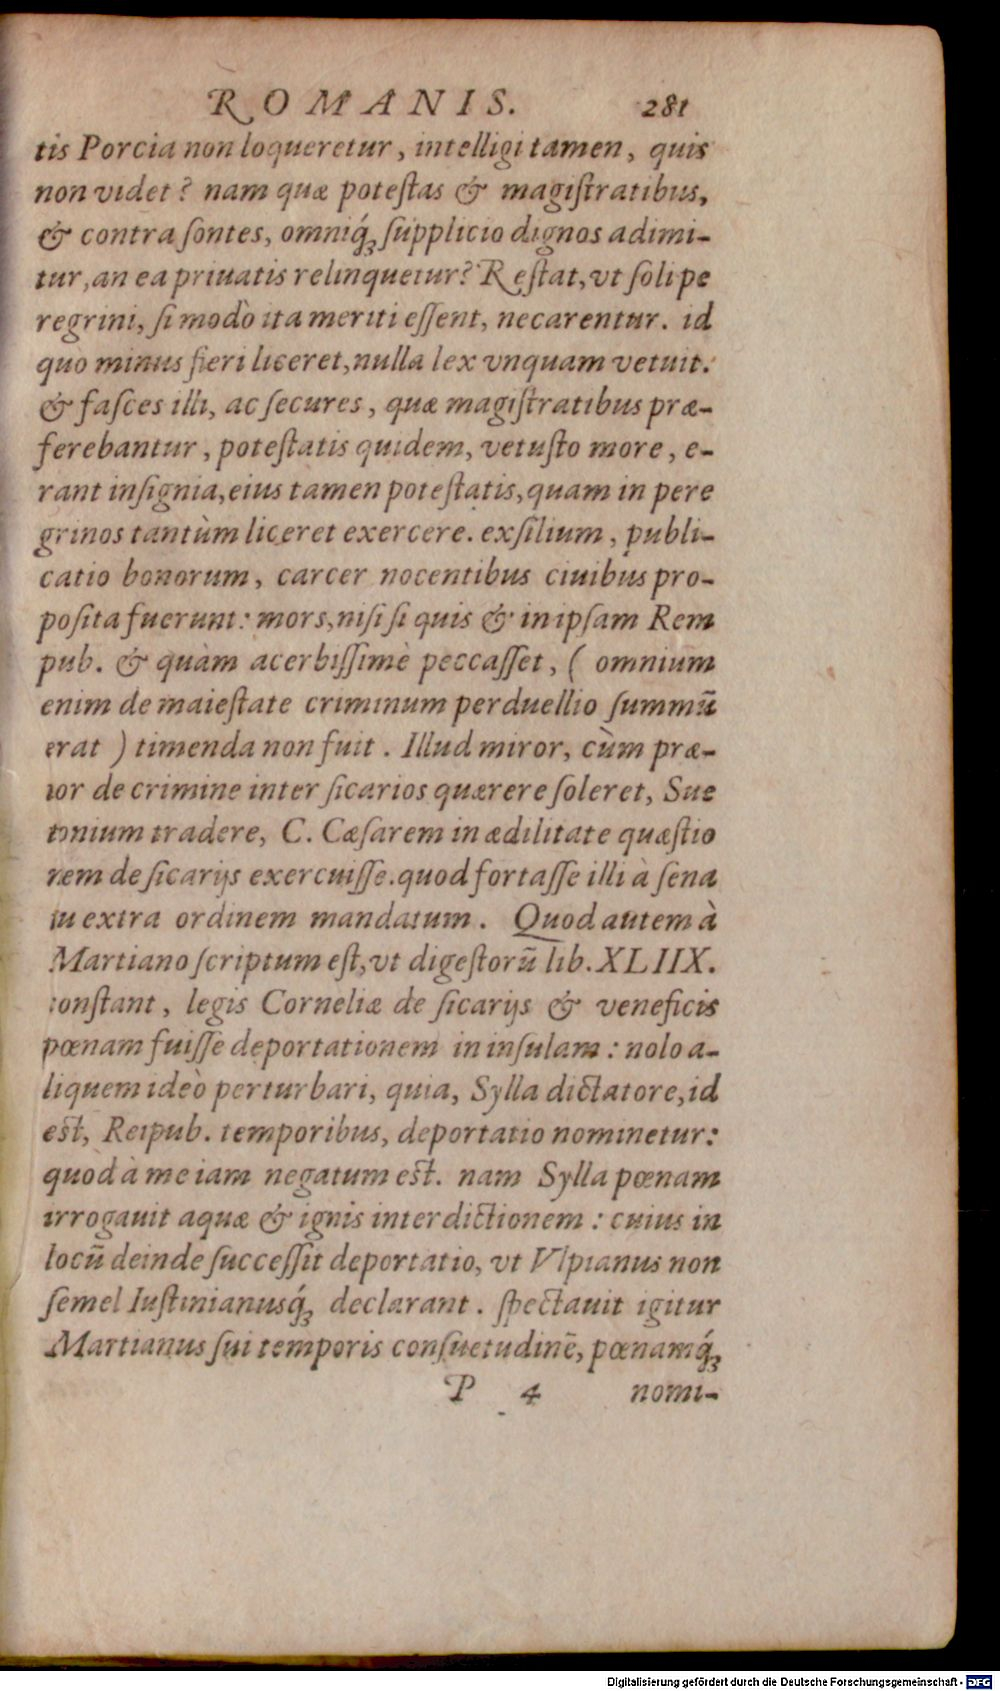 ROMANIS. 281
tis Porcia non loqueretur, intelligi tamen, quis
non videt? nam quæ poteſtas & magiſtratibus,
& contra ſontes, omniq́; ſupplicio dignos adimi-
tur, an ea priuatis relinquetur? Reſtat, vt ſoli pe
regrini, ſi modò ita meriti eſſent, necarentur. id
quo minus fieri liceret, nulla lex vnquam vetuit:
& faſces illi, ac ſecures, quæ magiſtratibus præ-
ferebantur, poteſtatis quidem, vetuſto more, e-
rant inſignia, eius tamen poteſtatis, quam in pere
grinos tantùm liceret exercere. exſilium, publi-
catio bonorum, carcer nocentibus ciuibus pro-
poſita fuerunt: mors, niſi ſi quis & in ipſam Rem
pub. & quàm acerbiſſimè peccaſſet, ( omnium
enim de maieſtate criminum perduellio ſummũ
erat ) timenda non fuit. Illud miror, cùm præ-
tor de crimine inter ſicarios quærere ſoleret, Sue
tonium tradere, C. Cæſarem in ædilitate quæſtio
nem de ſicarijs exercuiſſe. quod fortaſſe illi à ſena
tu extra ordinem mandatum. Quod autem à
Martiano ſcriptum eſt, vt digeſtorũ lib. XLIIX.
conſtant, legis Corneliæ de ſicarijs & veneficis
pœnam fuiſſe deportationem in inſulam: nolo a-
liquem ideò perturbari, quia, Sylla dictatore, id
eſt, Reipub. temporibus, deportatio nominetur:
quòd à me iam negatum eſt. nam Sylla pœnam
irrogauit aquæ & ignis interdictionem: cuius in
locũ deinde ſucceſſit deportatio, vt Vlpianus non
ſemel Iuſtinianusq́; declarant. ſpectauit igitur
Martianus ſui temporis conſuetudinẽ, pœnamq́;
P 4 nomi-
Digitalisierung gefördert durch die Deutsche Forschungsgemeinschaft - DFG